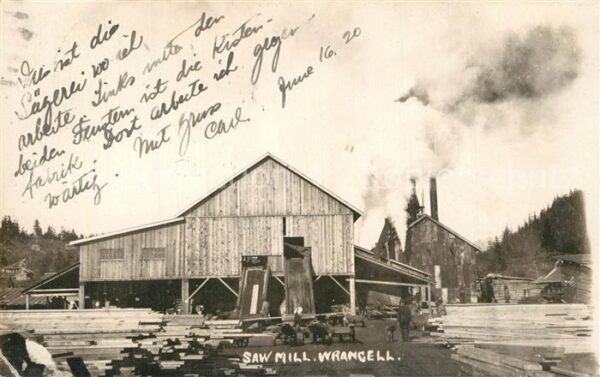 Dies ist die
Sägerei wo ich
arbeite. Links unter den
beiden Fenstern ist die Kisten-
fabrik. Dort arbeite ich gegen
wärtig. Mit Gruss
Carl.
June 16. 20
SAW MILL. WRANGELL.